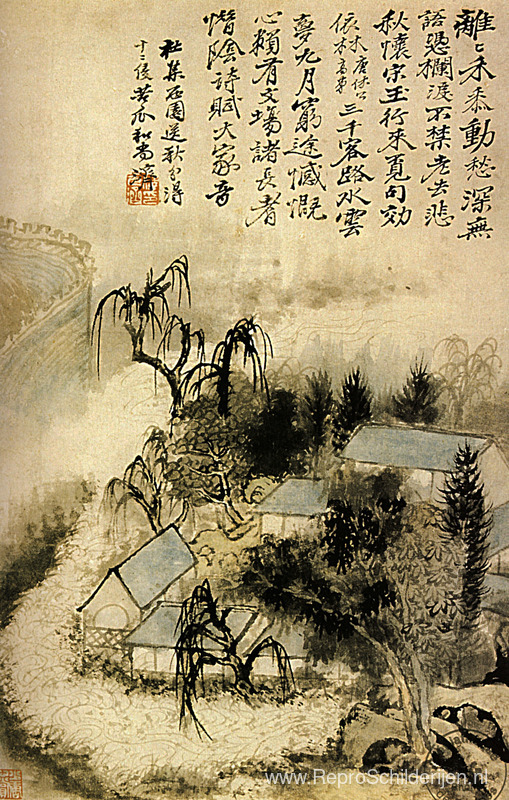 離〻禾黍動愁深無
語憑欄淚不禁老去悲
秋懷宗玉行來覓句効
三千客路水雲
夢九月窮途憾慨
心賴有文場諸長者
惜陰詩賦大家音
社集園送秋分得
十二侵苦瓜和尚濟
www.ReproSchilderijen.nl